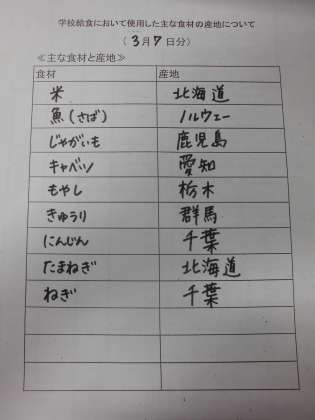 学校給食において使用した主な食材の産地について
（ 3月7日分）
≪主な食材と産地≫
食材 産地
米 北海道
魚(さば) ノルウェー
じゃがいも 鹿児島
キャベツ 愛知
もやし 栃木
きゅうり 群馬
にんじん 千葉
たまねぎ 北海道
ねぎ 千葉